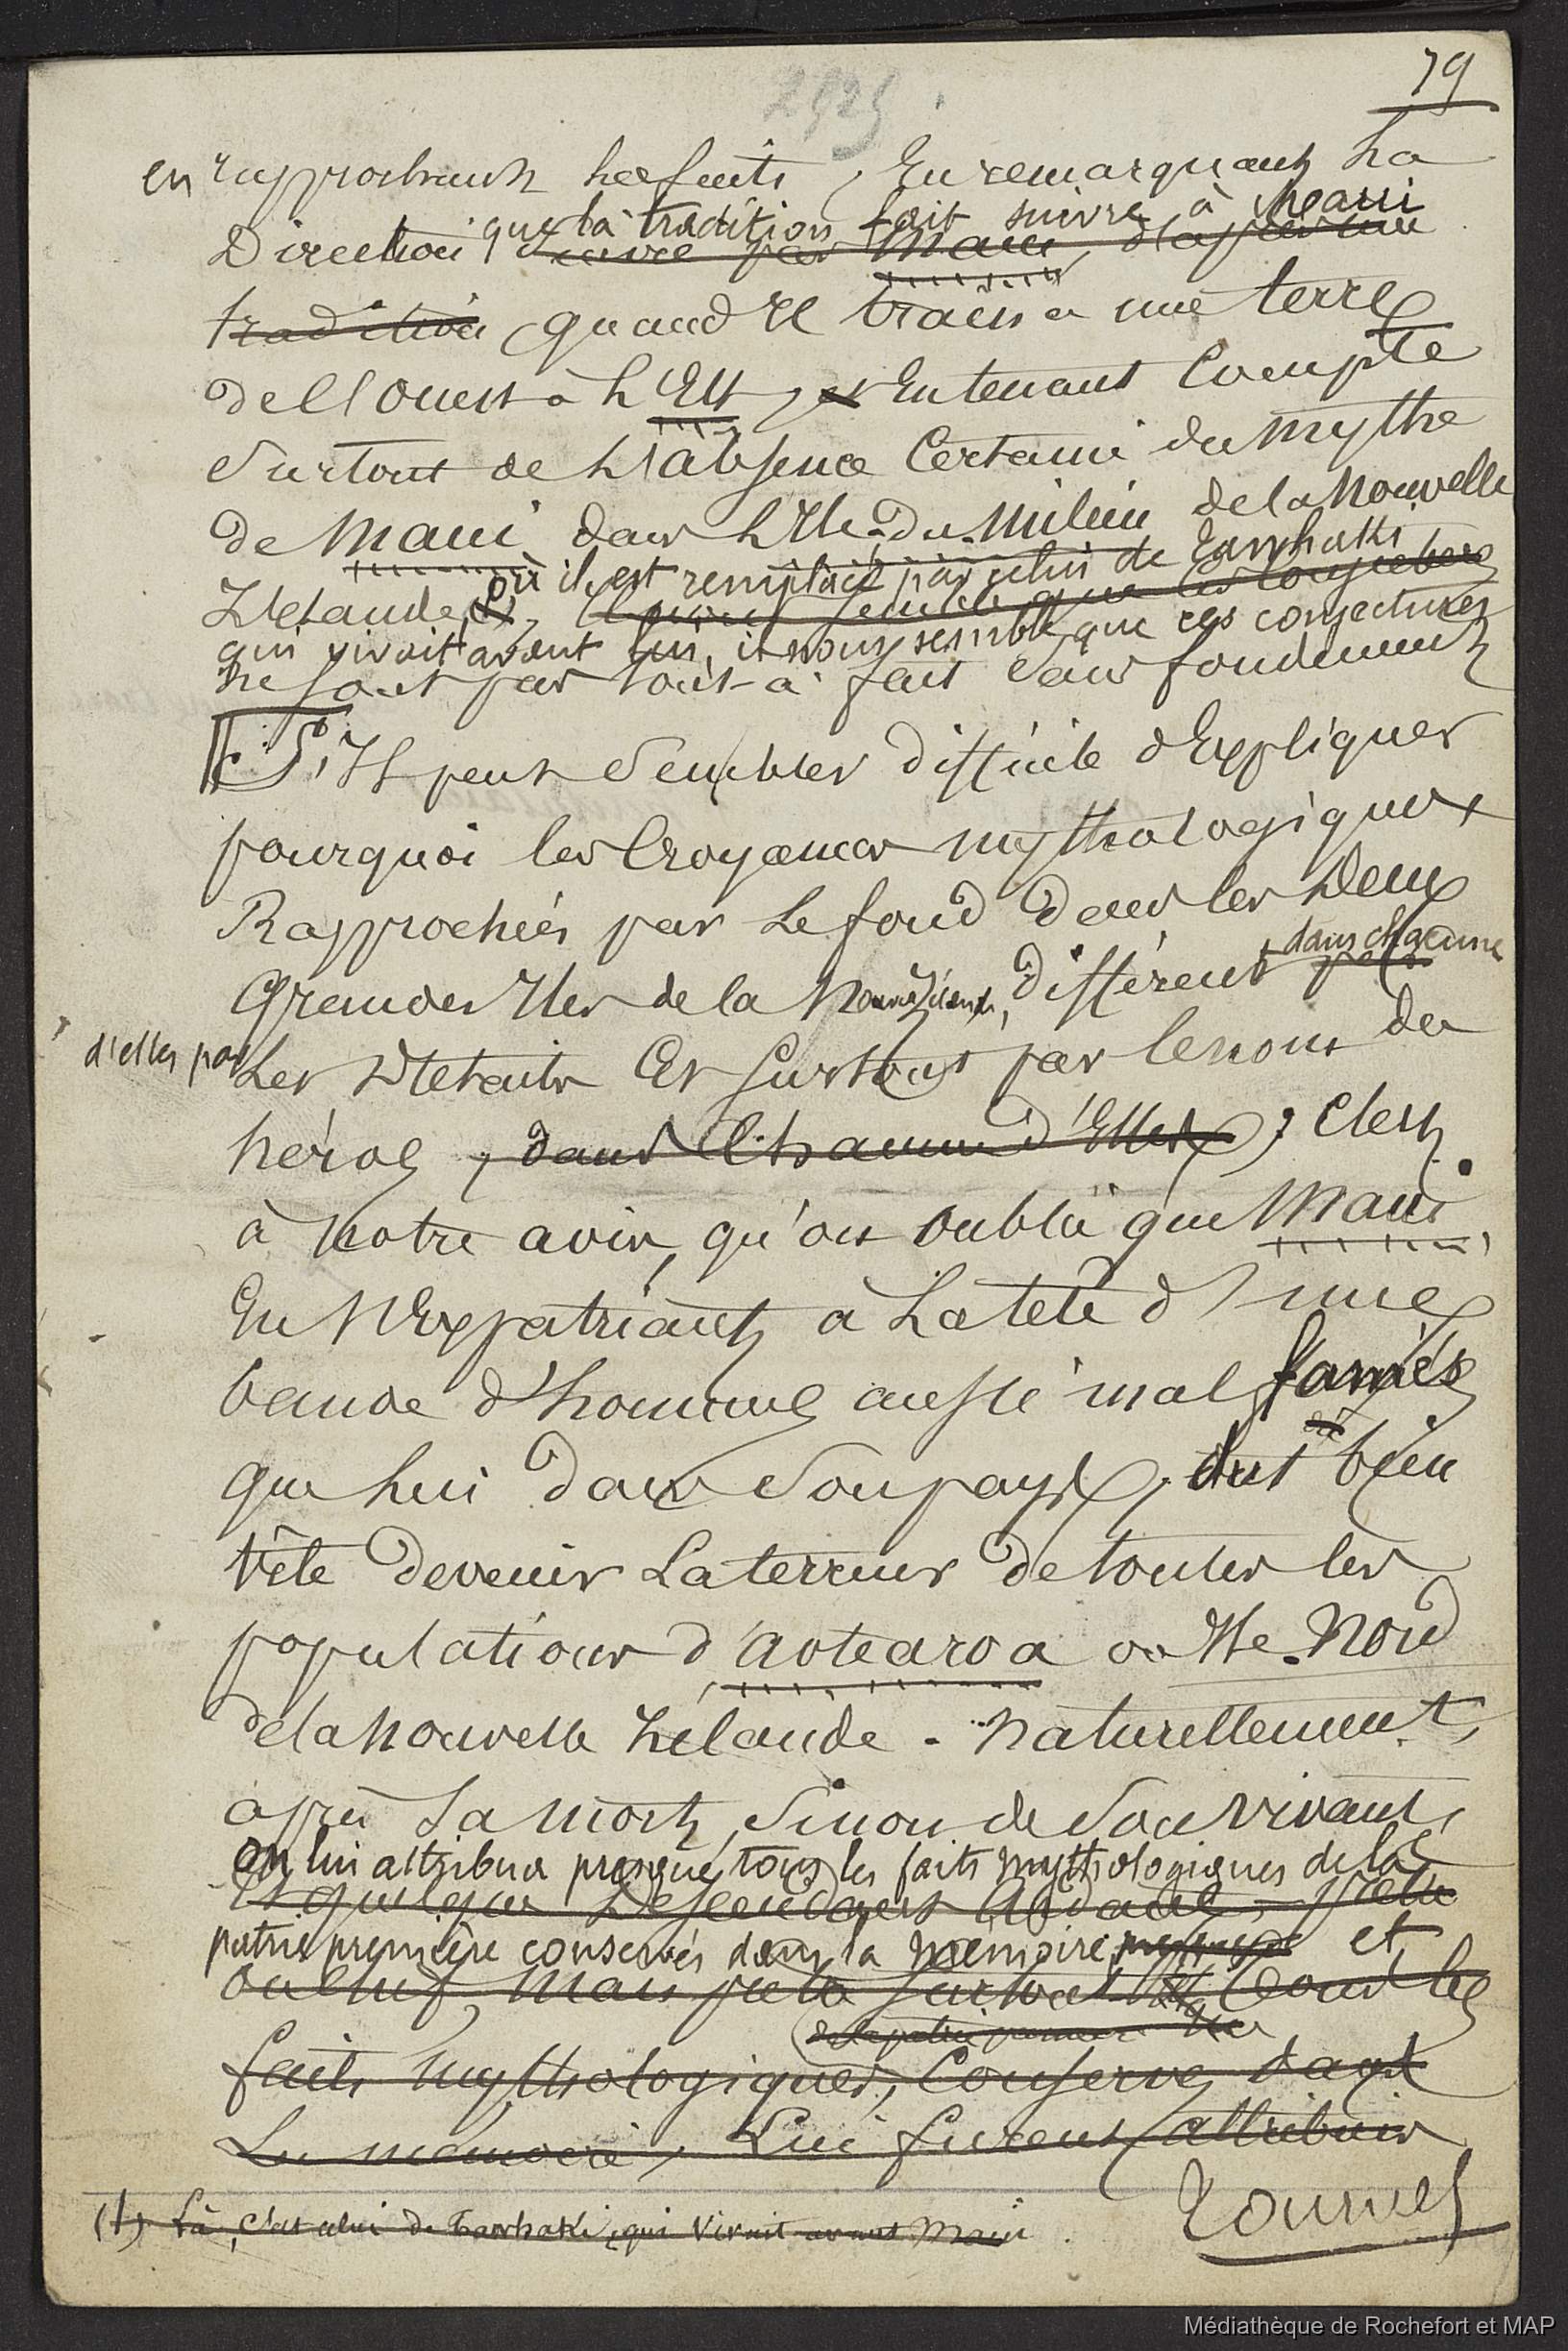 79
2525
en rapprochant les faits, En remarquant La
que la tradition fait suivre à Maui
Direction suivie par Maui, d'après une
tradition, quand il traina une terre
de l'Ouest à L'Est, et En tenant Compte
Surtout de L'absence Certaine du mythe
de Maui dans L'Ile-du-Milieu de la Nouvelle
où il est remplacé par celui de Tawhaki
Zélande,
qui vivait avant lui, il nous semble que ces conjectures
ne sont pas tout-à-fait Sans fondement
S'Il peut Sembler difficile d'Expliquer
pourquoi les Croyances mythologiques
Rapprochées par Le fond dans les Deux
dans chacune
Grandes Iles de la Nouv. Zélande, diffèrent par
d'elles par
Les Détails Et Surtout par les noms des
héros, dans Chacune d'Elles, ; C'est
à Notre avis, qu'on oublia que Maui
En S'Expatriant à La tête d'une
bande d'hommes aussi mal famés
que Lui dans Son pays, dut bien
vite devenir La terreur de toutes les
populations d'Aotearoa ou Ile-Nord
de la Nouvelle Zélande. Naturellement,
après Sa mort, Sinon de Son vivant,
on lui attribua presque tous les faits mythologiques de la
patrie première conservés dans la mémoire et
faits mythologiques, Conservés dans
La mémoire, Lui furent attribués
(1) Là, c'est celui de Tawhaki, qui vivait avant Maui.
Tournez
Médiathèque de Rochefort et MAP